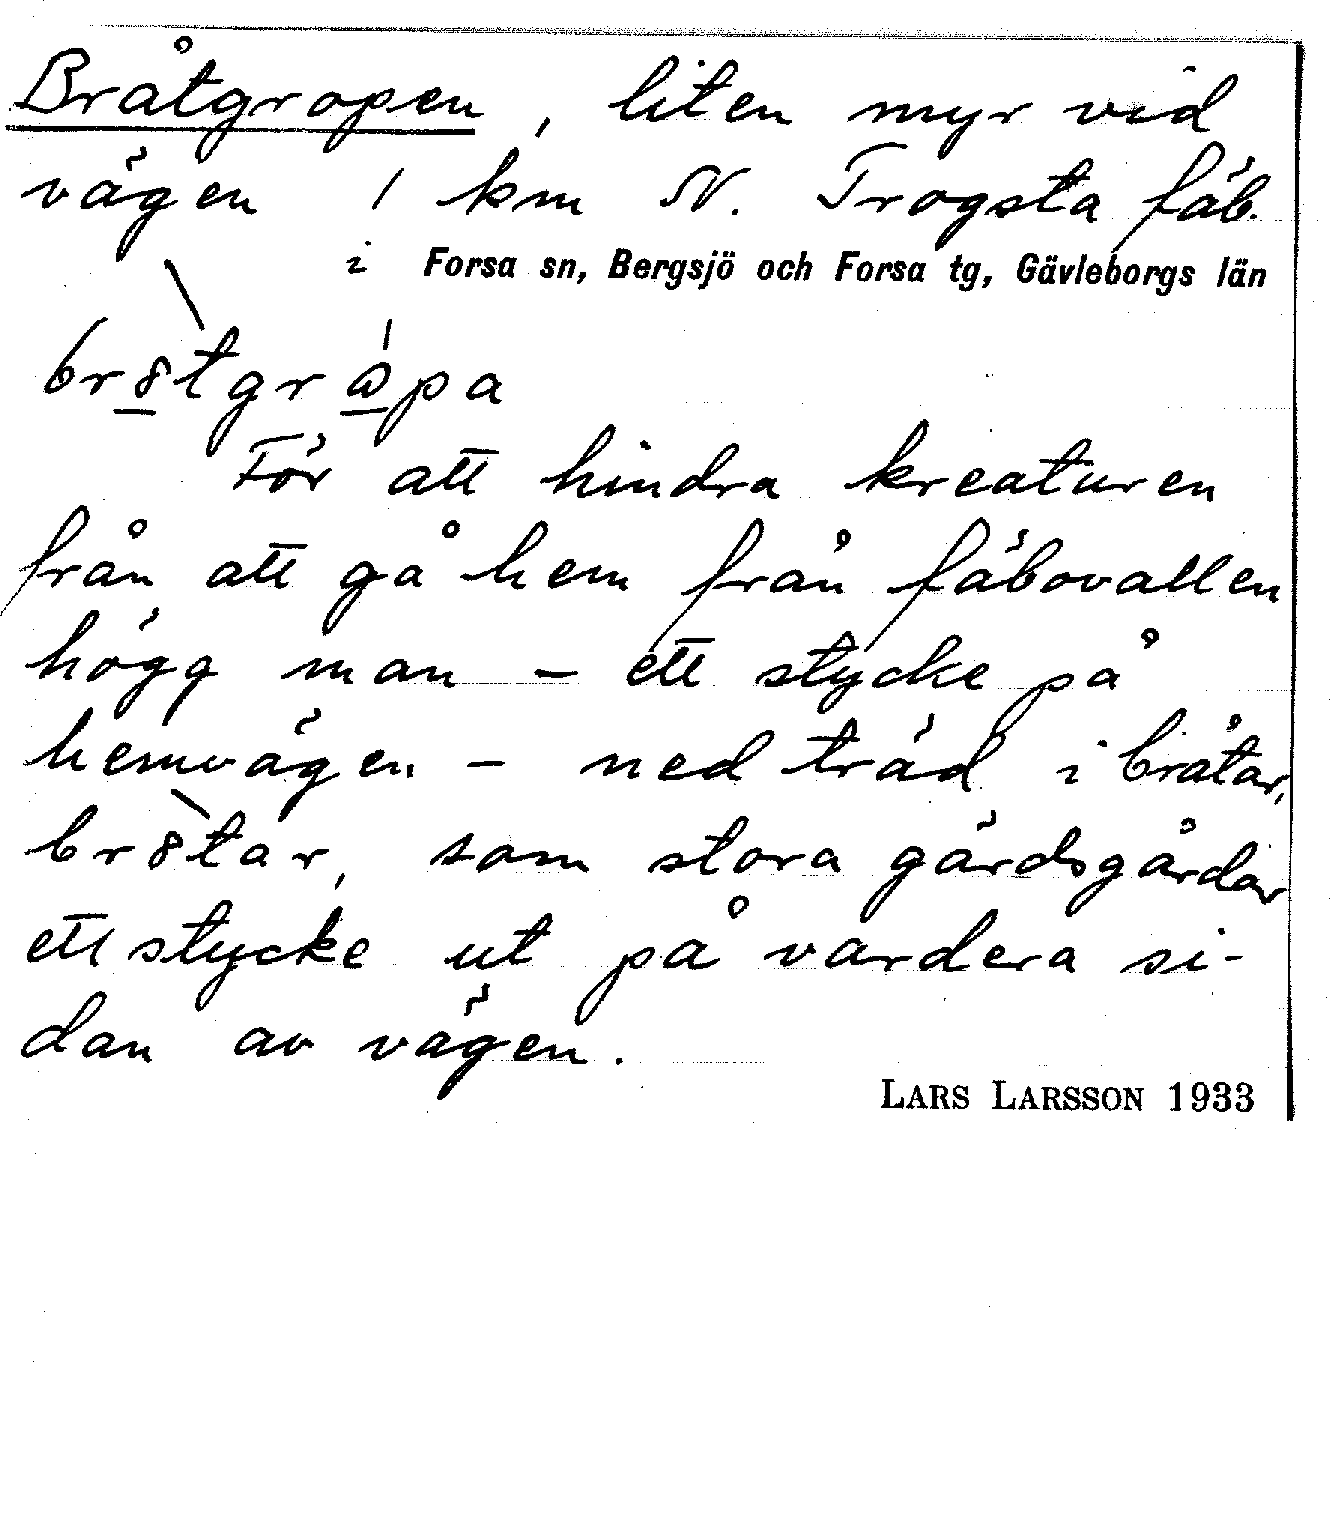 Bråtgropen, liten myr vid
vägen 1 km N. Trogsta fäb.
i Forsa sn, Bergsjö och Forsa tg, Gävleborgs län
br8̲̀tgrώ̲pa
För att hindra kreaturen
från att gå hem från fäbovallen
högg man – ett stycke på
hemvägen – ned träd i bråtar,
br8̀tar, som stora gärdsgårdar
ett stycke ut på vardera si-
dan av vägen.
LARS LARSSON 1933